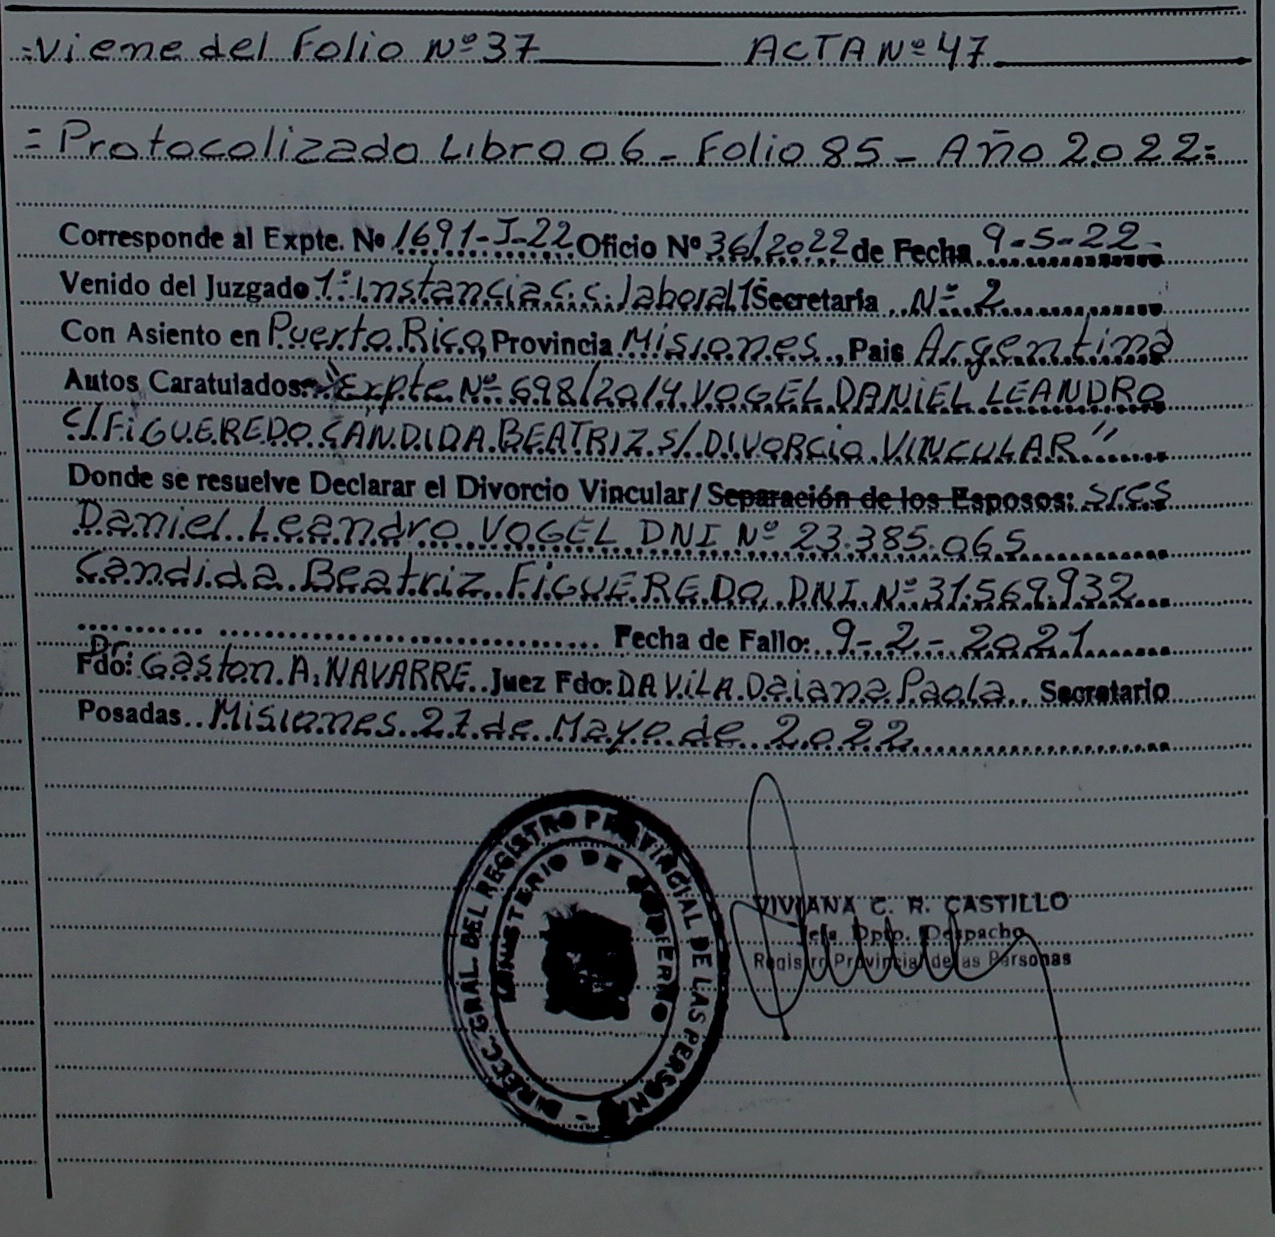 =Viene del Folio Nº 37 ACTA Nº 47
= Protocolizado Libro 06 - Folio 85 - Año 2.022=
Corresponde al Expte. Nº 1691-J-22 Oficio Nº 36/2022 de Fecha 9-5-22-
Venido del Juzgado 1º Instancia C.C. laboral 1 Secretaría Nº 2
Con Asiento en Puerto Rico, Provincia Misiones, Pais Argentina
Autos Caratulados: "Expte Nº 698/2014 VOGEL DANIEL LEANDRO
C/FIGUEREDO CANDIDA BEATRIZ S/ DIVORCIO VINCULAR"
Donde se resuelve Declarar el Divorcio Vincular/ Separación de los Esposos: Sres
Daniel Leandro VOGEL DNI Nº 23.385.065
Candida Beatriz FIGUEREDO, DNI Nº 31.569.932
Fecha de Fallo: 9-2-2021
Fdo: Dr. Gaston A. NAVARRE Juez Fdo: DAVILA Daiana Paola Secretario
Posadas Misiones 27 de Mayo de 2.022
DIRECC. GRAL. DEL REGISTRO PROVINCIAL DE LAS PERSONAS -
MINISTERIO DE GOBIERNO
VIVIANA C. R. CASTILLO
Jefa Dpto. Despacho
Registro Provincial de las Personas